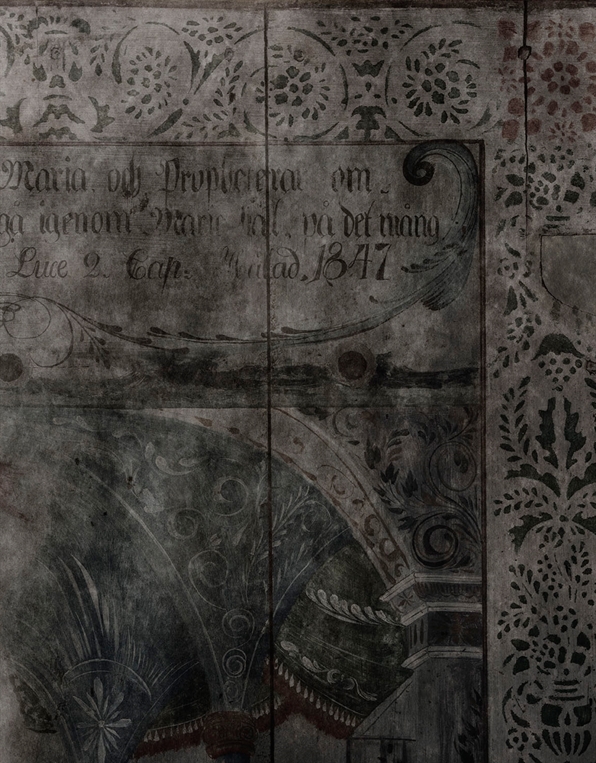 Maria, och Propheterar om
gå igenom Mari själ, på det mång
Luce 2. Cap: Målad, 1847